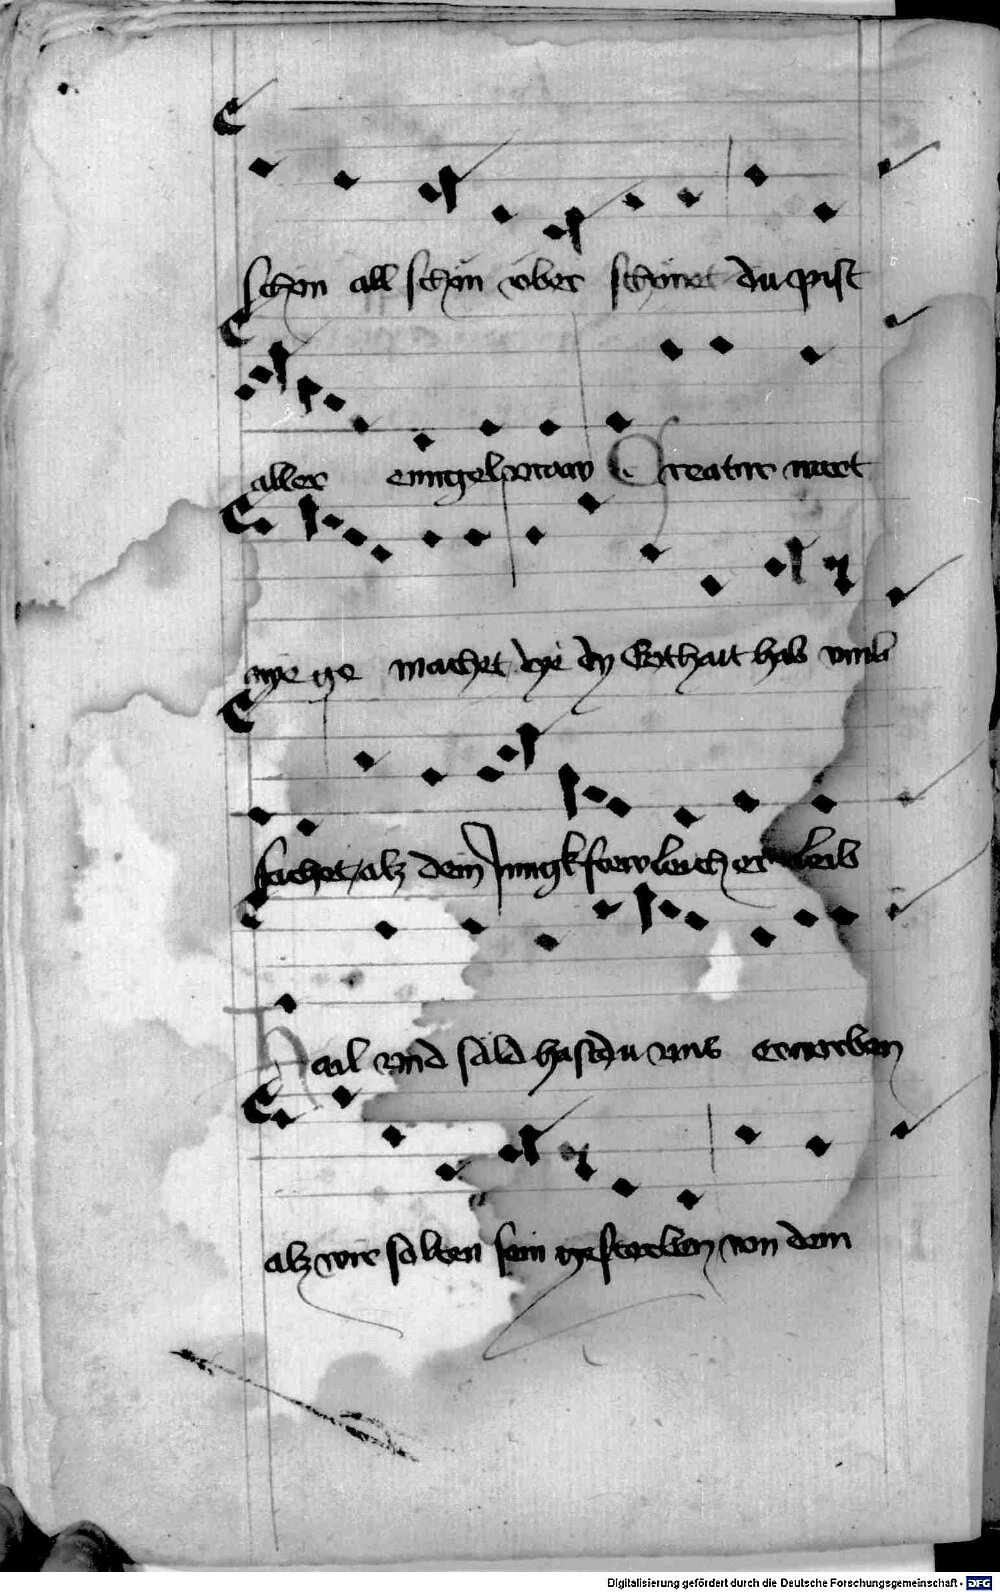 schon all schon vber schonet du pist
aller engel vraw Creatur wart
nye ge machet dye dy Gothait hab vmb
fachet / alz dein Jungkfrewleich er leib
Hail vnd säld hastdu vns erworben
alz wir solten sein gestorben von dem
Digitalisierung gefördert durch die Deutsche Forschungsgemeinschaft - DFG